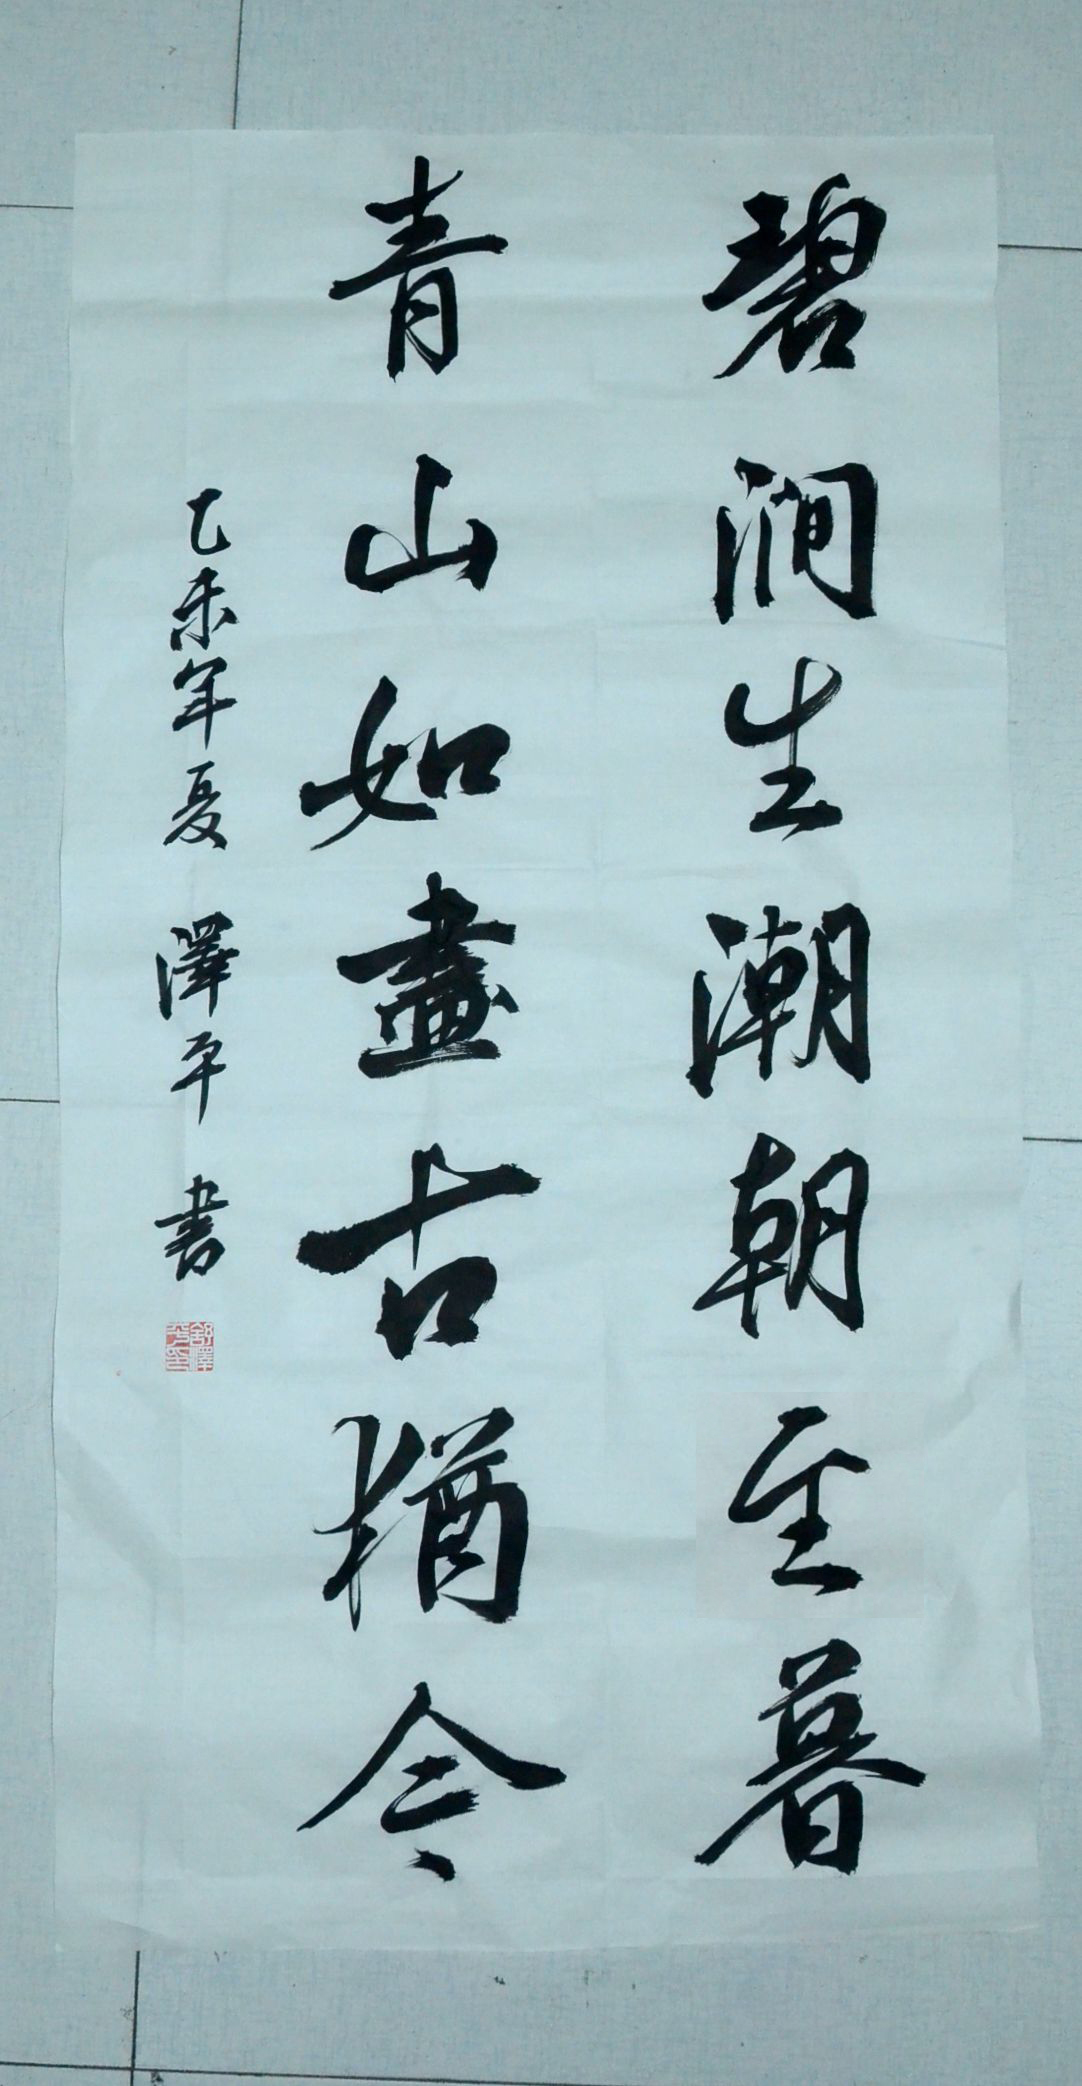 碧涧生潮朝至暮
青山如畫古猶今
乙未年夏 澤平 書
舒澤平印